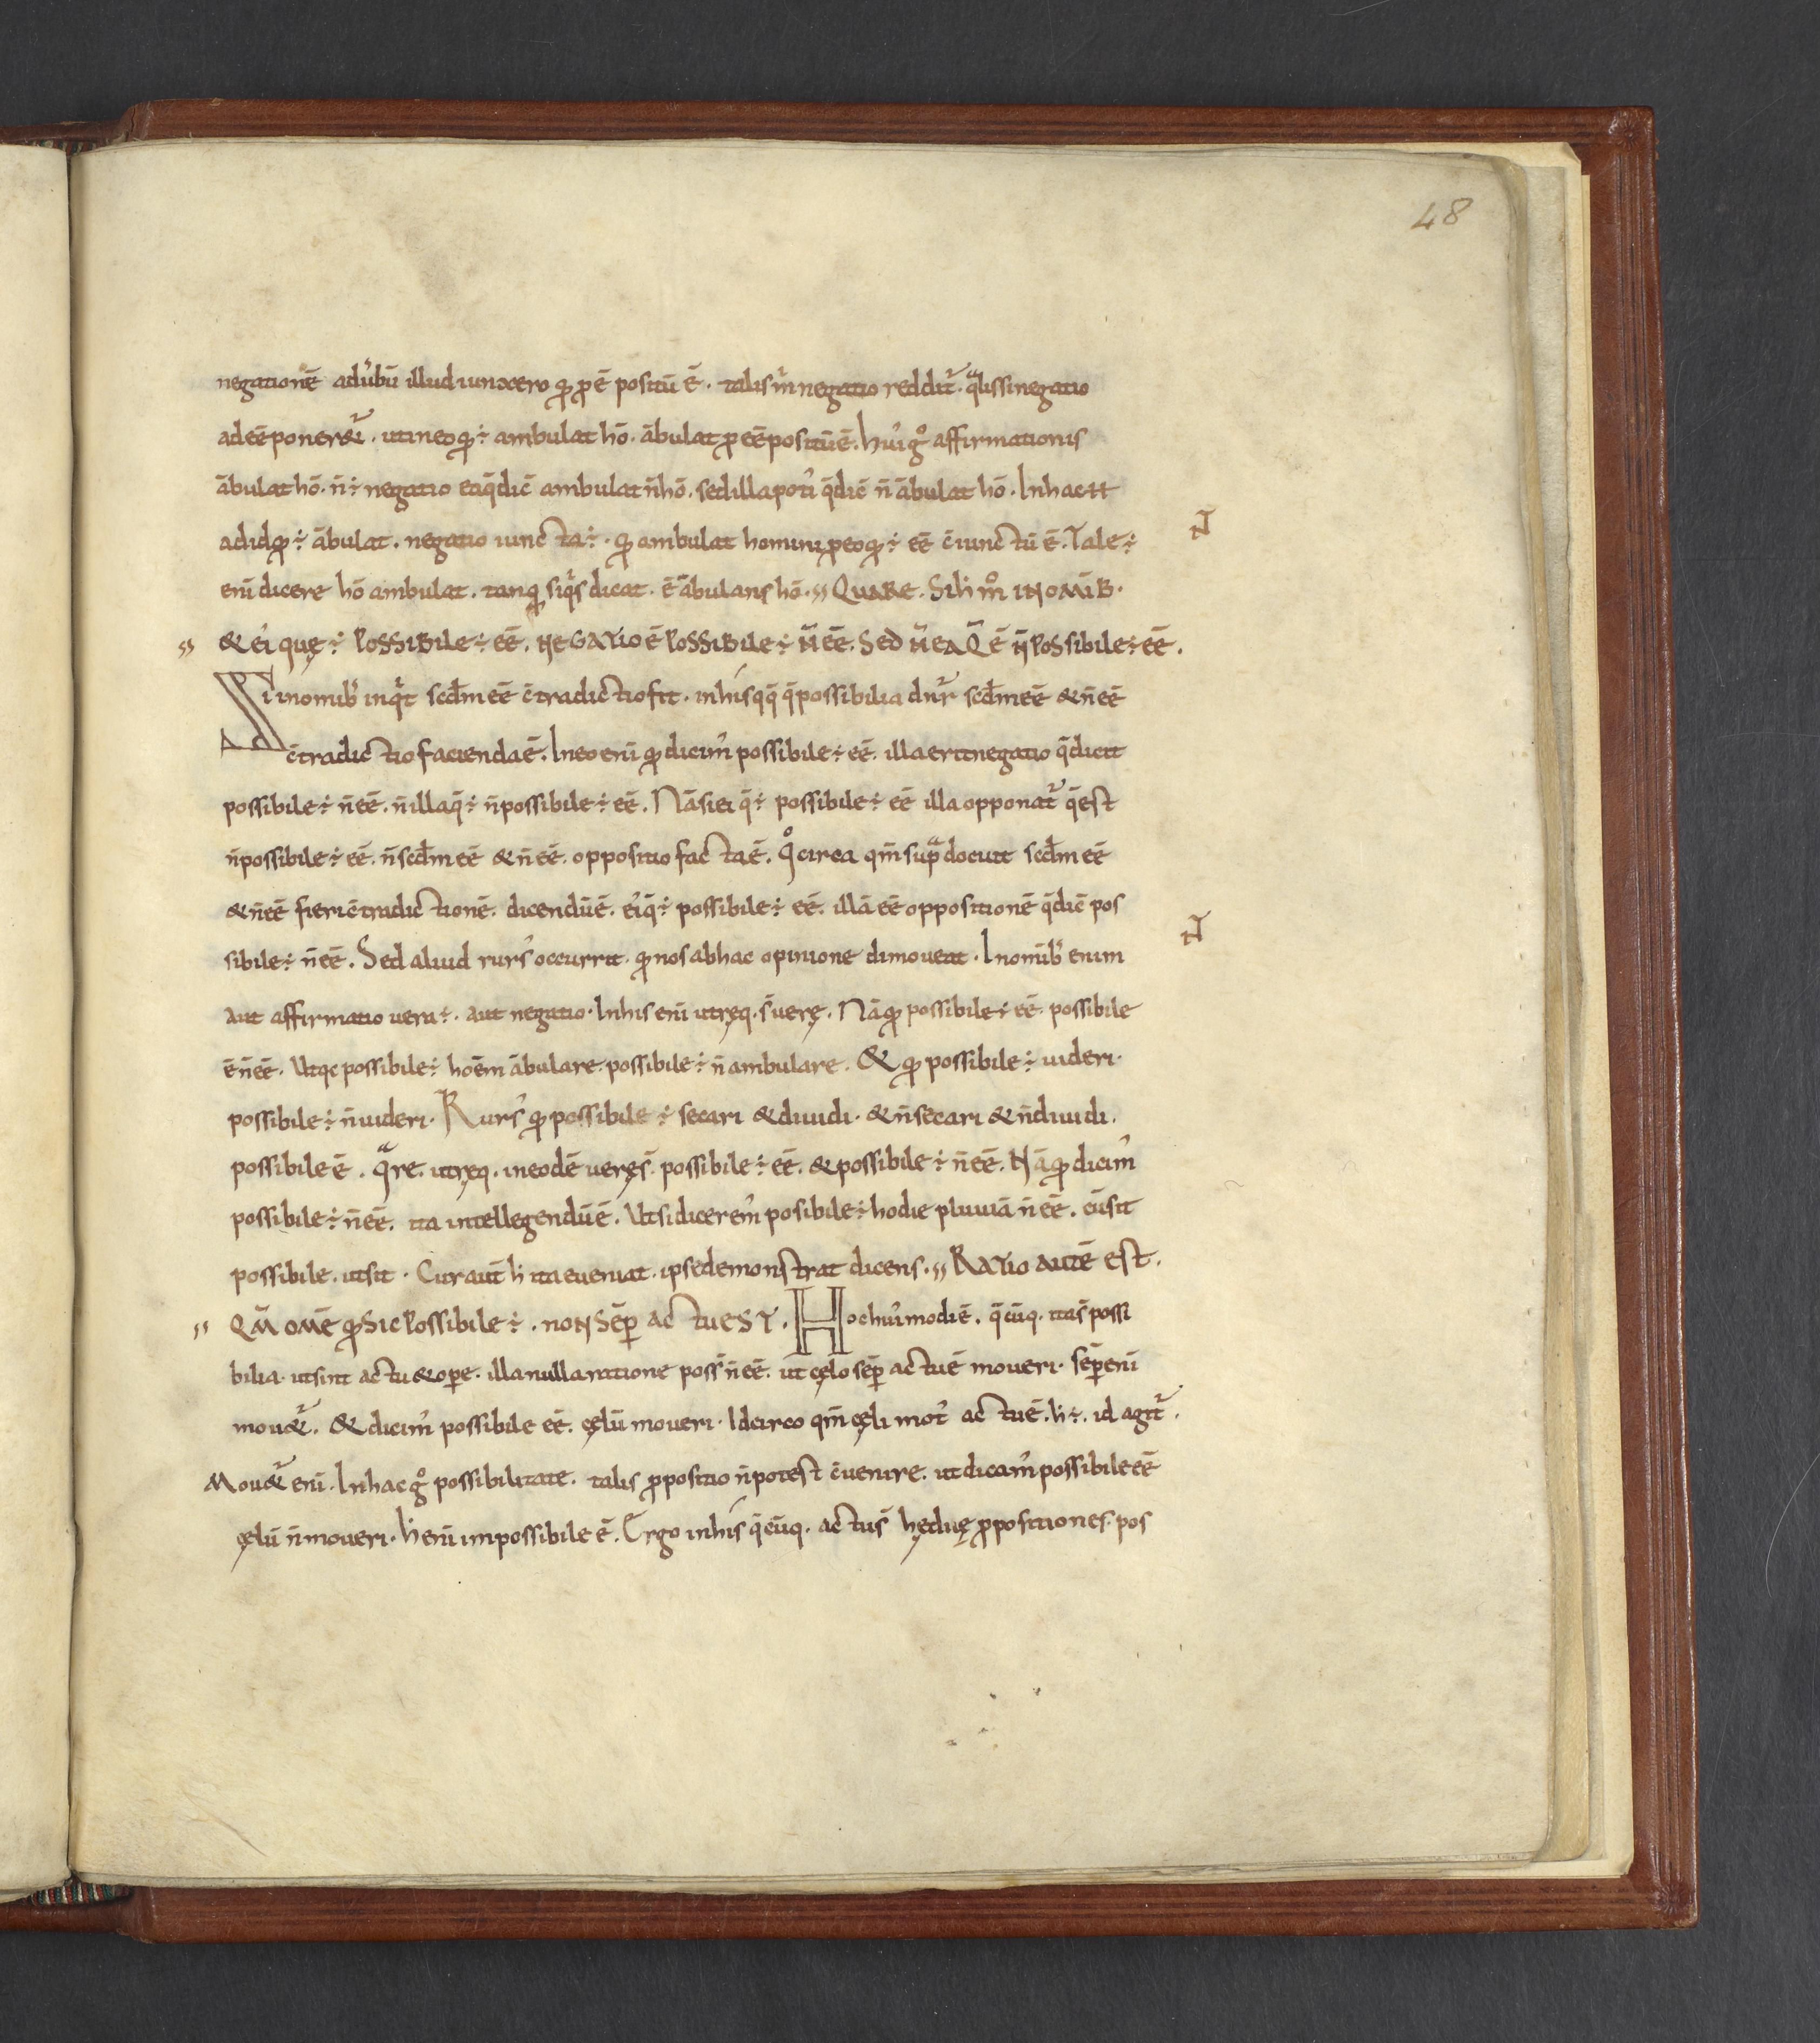 48
negationē aduͥbū illud iunxero qd̄ ꝓ ē positū ē. talis m̄ negatio reddit᷑. qͣlis si negatio
ad eē poneret᷑. ut in eo qd̄ ÷ ambulat hō. ābulat ꝓ eē positū ē. hui᷒ gͦ affirmationis
ābulat hō. n̄ ÷ negatio ea q̄ dic̄ ambulat n̄ hō. sed illa poti᷒ q̄ dic̄ n̄ ābulat hō. In hac
ad id qd̄ ÷ ābulat. negatio iuncta ÷. qd̄ ambulat homini ꝓ eo qd̄ ÷ eē c̄iunctū ē. Tale ÷
enī dicere hō ambulat. tanqͣ siqͥs dicat. ē ābulans hō. QUARE. SIL̄I m̊ IN OMĪB.
& ei᷒ quę ÷ POSSIBILE ÷ eē. NEGATIO ē POSSIBILE ÷ N̄ eē. SED N̄ EA Q̄ ē N̄ POSSIBILE ÷ eē.
Si in omīb᷒ inqͥt scd̄m eē c̄tradictio fit. in his qq̄ q̄ possibilia dn̄r scd̄m eē & n̄ eē
c̄tradictio facienda ē. In eo enī qd̄ dicim᷒ possibile ÷ eē. illa erit negatio q̄ dicit
possibile ÷ n̄ eē. n̄ illa q̄ ÷ n̄ possibile ÷ eē. Nā si ei q̄ ÷ possibile ÷ eē illa opponat᷑ q̄ est
n̄ possibile ÷ eē. n̄ scd̄m eē & n̄ eē. oppositio facta ē. qͦcirca qm̄ supͣ docuit scd̄m eē
& n̄ eē fieri c̄tradictionē. dicendū ē. ei᷒ q̄ ÷ possibile ÷ eē. illā eē oppositionē q̄ dic̄ pos
sibile ÷ n̄ eē. Sed aliud rurs᷒ occurrit. qd̄ nos ab hac opinione dimoveat. In omīb᷒ enim
aut affirmatio vera ÷. aut negatio. In his enī utręq. s̄ verę. Nā qd̄ possibile ÷ eē. possibile
ē n̄ eē. Ut qc possibile ÷ hoēm ābulare. possibile ÷ n̄ ambulare. & qd̄ possibile ÷ uideri.
possibile ÷ n̄ uideri. Rurs᷒ qd̄ possibile ÷ secari & diuidi. & n̄ secari & n̄ diuidi.
possibile ē. qͣre. utręq. in eodē uerę s̄. possibile ÷ eē. & possibile ÷ n̄ eē. Nā qd̄ dicim᷒
possibile ÷ n̄ eē. ita intellegendū ē. Ut si dicerem᷒ posibile ÷ hodie pluuiā n̄ eē. cū sit
possibile. ut sit. Cur aut̄ h̄ ita eueniat. ipse demonstrat dicens. RATIO AUTĒ EST.
QM̄ OMĒ qd̄ SIC POSSIBILE ÷. NON SĒP ACTU EST. Hoc hui᷒modi ē. q̄cūq. ita s̄ possi
bilia. ut sint actu & oꝑe. illa nulla ratione poss̄ n̄ eē. ut cęlo sēꝑ actu ē moueri. sēꝑ enī
mouet᷑. & dicim᷒ possibile eē. cęlū moueri. Idcirco qm̄ cęli mot᷒ actu ē. h ÷. id agit᷑.
Mouet᷑ enī. In hac gͦ possibilitate. talis ꝓpositio n̄ potest c̄uenire. ut dicam᷒ possibile eē
cęlū n̄ moueri. h̄ enī impossibile ē. Ergo in his q̄cūq. actu s̄ hę duę ꝓpositiones. pos